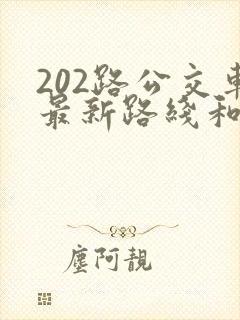 202路公交车
最新路线和
尘阿靓